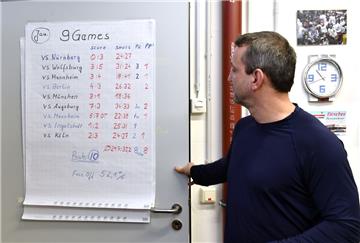 Jan. 9 Games
score shots P PP
VS. Nürnberg 0:3 24:27
VS. Wolfsburg 3:5 31:24 3 1
VS. Mannheim 3:4 18:41 2 1
VS. Berlin 4:3 26:32 2
VS. München 3:1 19:36
VS. Augsburg 7:3 34:33 2
VS. Mannheim 28:22
VS. Ingolstadt 1:2 25:31
VS. Köln 2:3 24:27 2 1
8 8
10
Face off 52,1%